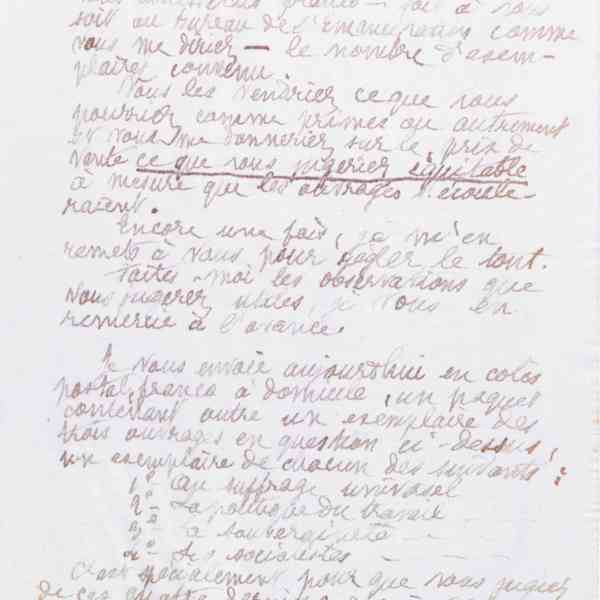 franco — soit à vous
soit au bureau de l'Emancipation comme
vous me direz — le nombre d'exem-
plaires convenu.
Vous les vendriez ce que vous
pourriez comme primes ou autrement
et vous me donneriez sur le prix de
vente ce que vous jugeriez équitable
à mesure que les ouvrages s'écoule-
raient.
Encore une fois, je m'en
remets à vous pour régler le tout.
Faites-moi les observations que
vous jugerez utiles, je vous en
remercie à l'avance.
Je vous envoie aujourd'hui en colis
postal, franco à domicile, un paquet
contenant outre un exemplaire des
trois ouvrages en question ci-dessus,
un exemplaire de chacun des suivants :
1° Au suffrage universel
2° - La politique du travail
3° - La souveraineté —
4° - Les socialistes —
C'est spécialement pour que vous jugiez
de ces quatre derniers